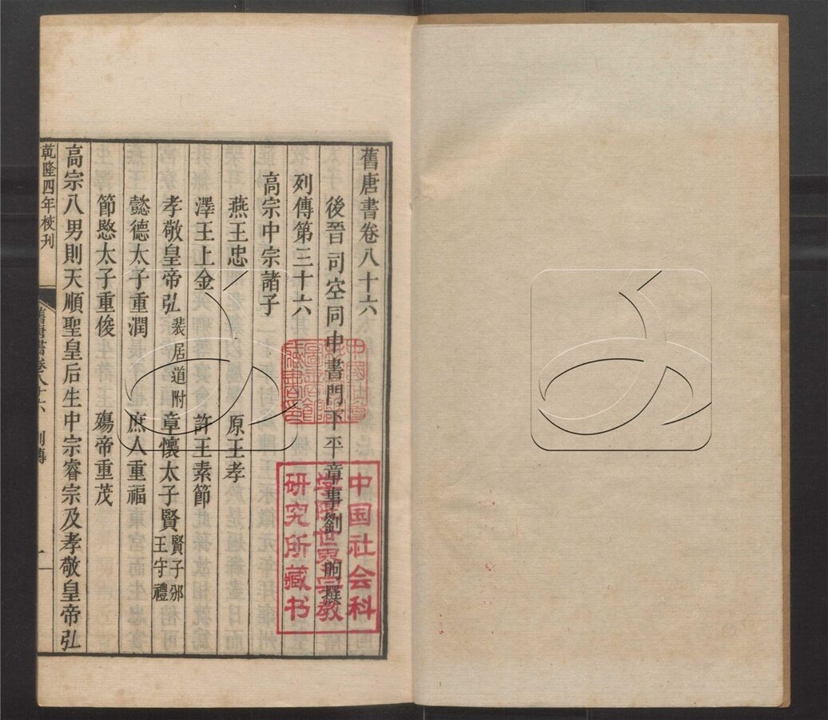 舊唐書卷八十六
後晉司空同中書門下平章事劉昫撰
列傳第三十六
高宗中宗諸子
燕王忠 原王孝
澤王上金 許王素節
孝敬皇帝弘 裴居道附 章懷太子賢 賢子邠王守禮
懿德太子重潤 庶人重福
節愍太子重俊 殤帝重茂
高宗八男則天順聖皇后生中宗睿宗及孝敬皇帝弘
乾隆四年校刊
舊唐書卷八十六 列傳 一
中国社会科
学院世界宗教
研究所藏书